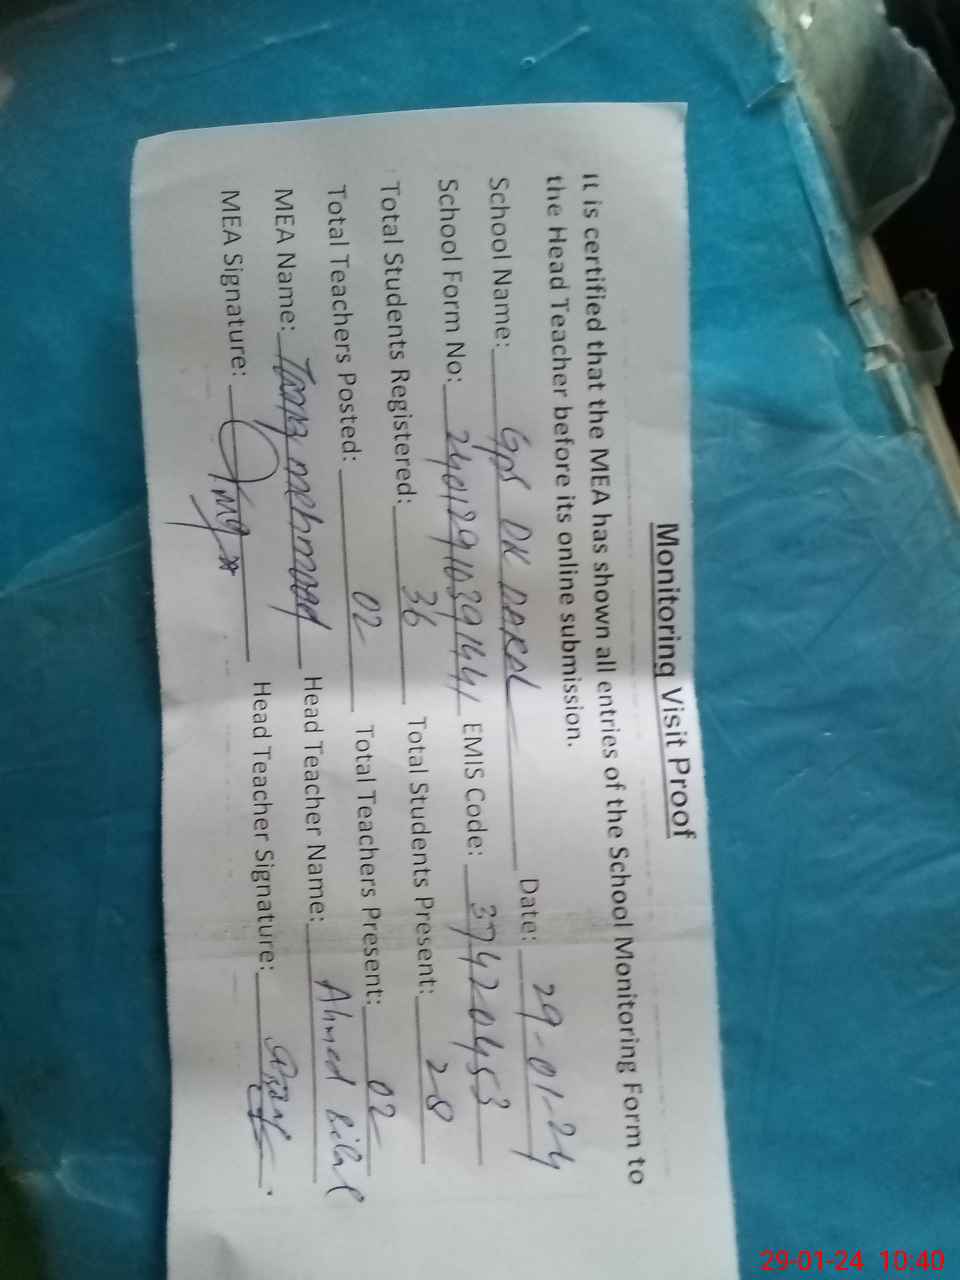 Monitoring Visit Proof
It is certified that the MEA has shown all entries of the School Monitoring Form to
the Head Teacher before its online submission.
School Name: GPS DK DARAL Date: 29-01-24
School Form No: EMIS Code: 37420453
Total Students Registered: 36 Total Students Present: 28
Total Teachers Posted: 02 Total Teachers Present: 02
MEA Name: mehmood Head Teacher Name: Ahmed Bilal
MEA Signature: Head Teacher Signature:
29-01-24 10:40